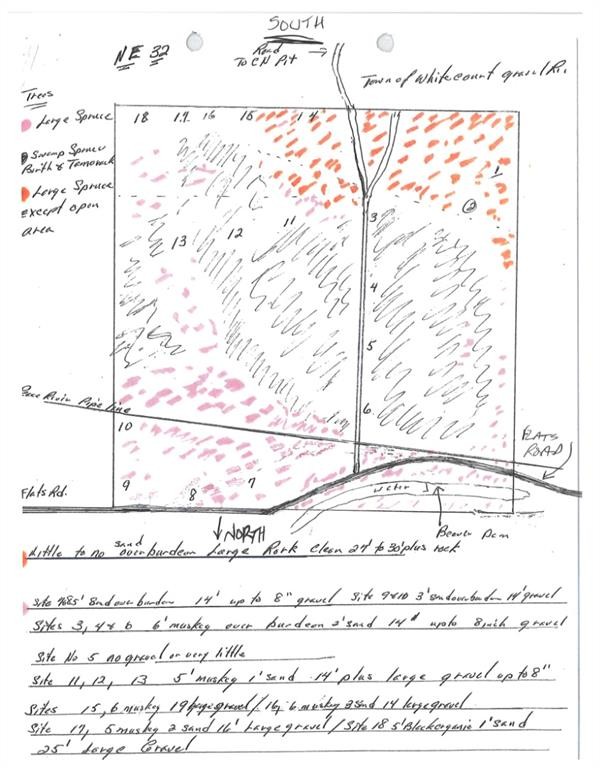 SOUTH
NE 32
Road
To CN Pit
Town of Whitecourt gravel
Trees
Large Spruce
Swamp Spruce
Large Spruce
except open
area
18 17 16 15 14
1
2
3
11
12
13
4
5
6
Pipe line
10
9
8
7
Flats Rd.
FLATS
ROAD
water
NORTH
Beaver Dam
sand
Little to no overburden Large Rock Clean 27' to 30' plus rock
14' up to 8" gravel Site 9&10 3' 14' gravel
Sites 3, 4 & 6 6' muskeg over burden 2' sand 14' upto 8 inch gravel
Site No 5 no gravel or very little
Site 11, 12, 13 5' muskeg 1' sand 14' plus large gravel up to 8"
Sites 15, 6 muskeg 19 large gravel / 16, 6 muskeg 2 sand 14 large gravel
Site 17, 5 muskeg 2 sand 16' Large gravel / Site 18 5' Blackorganic 1' sand
25' Large Gravel